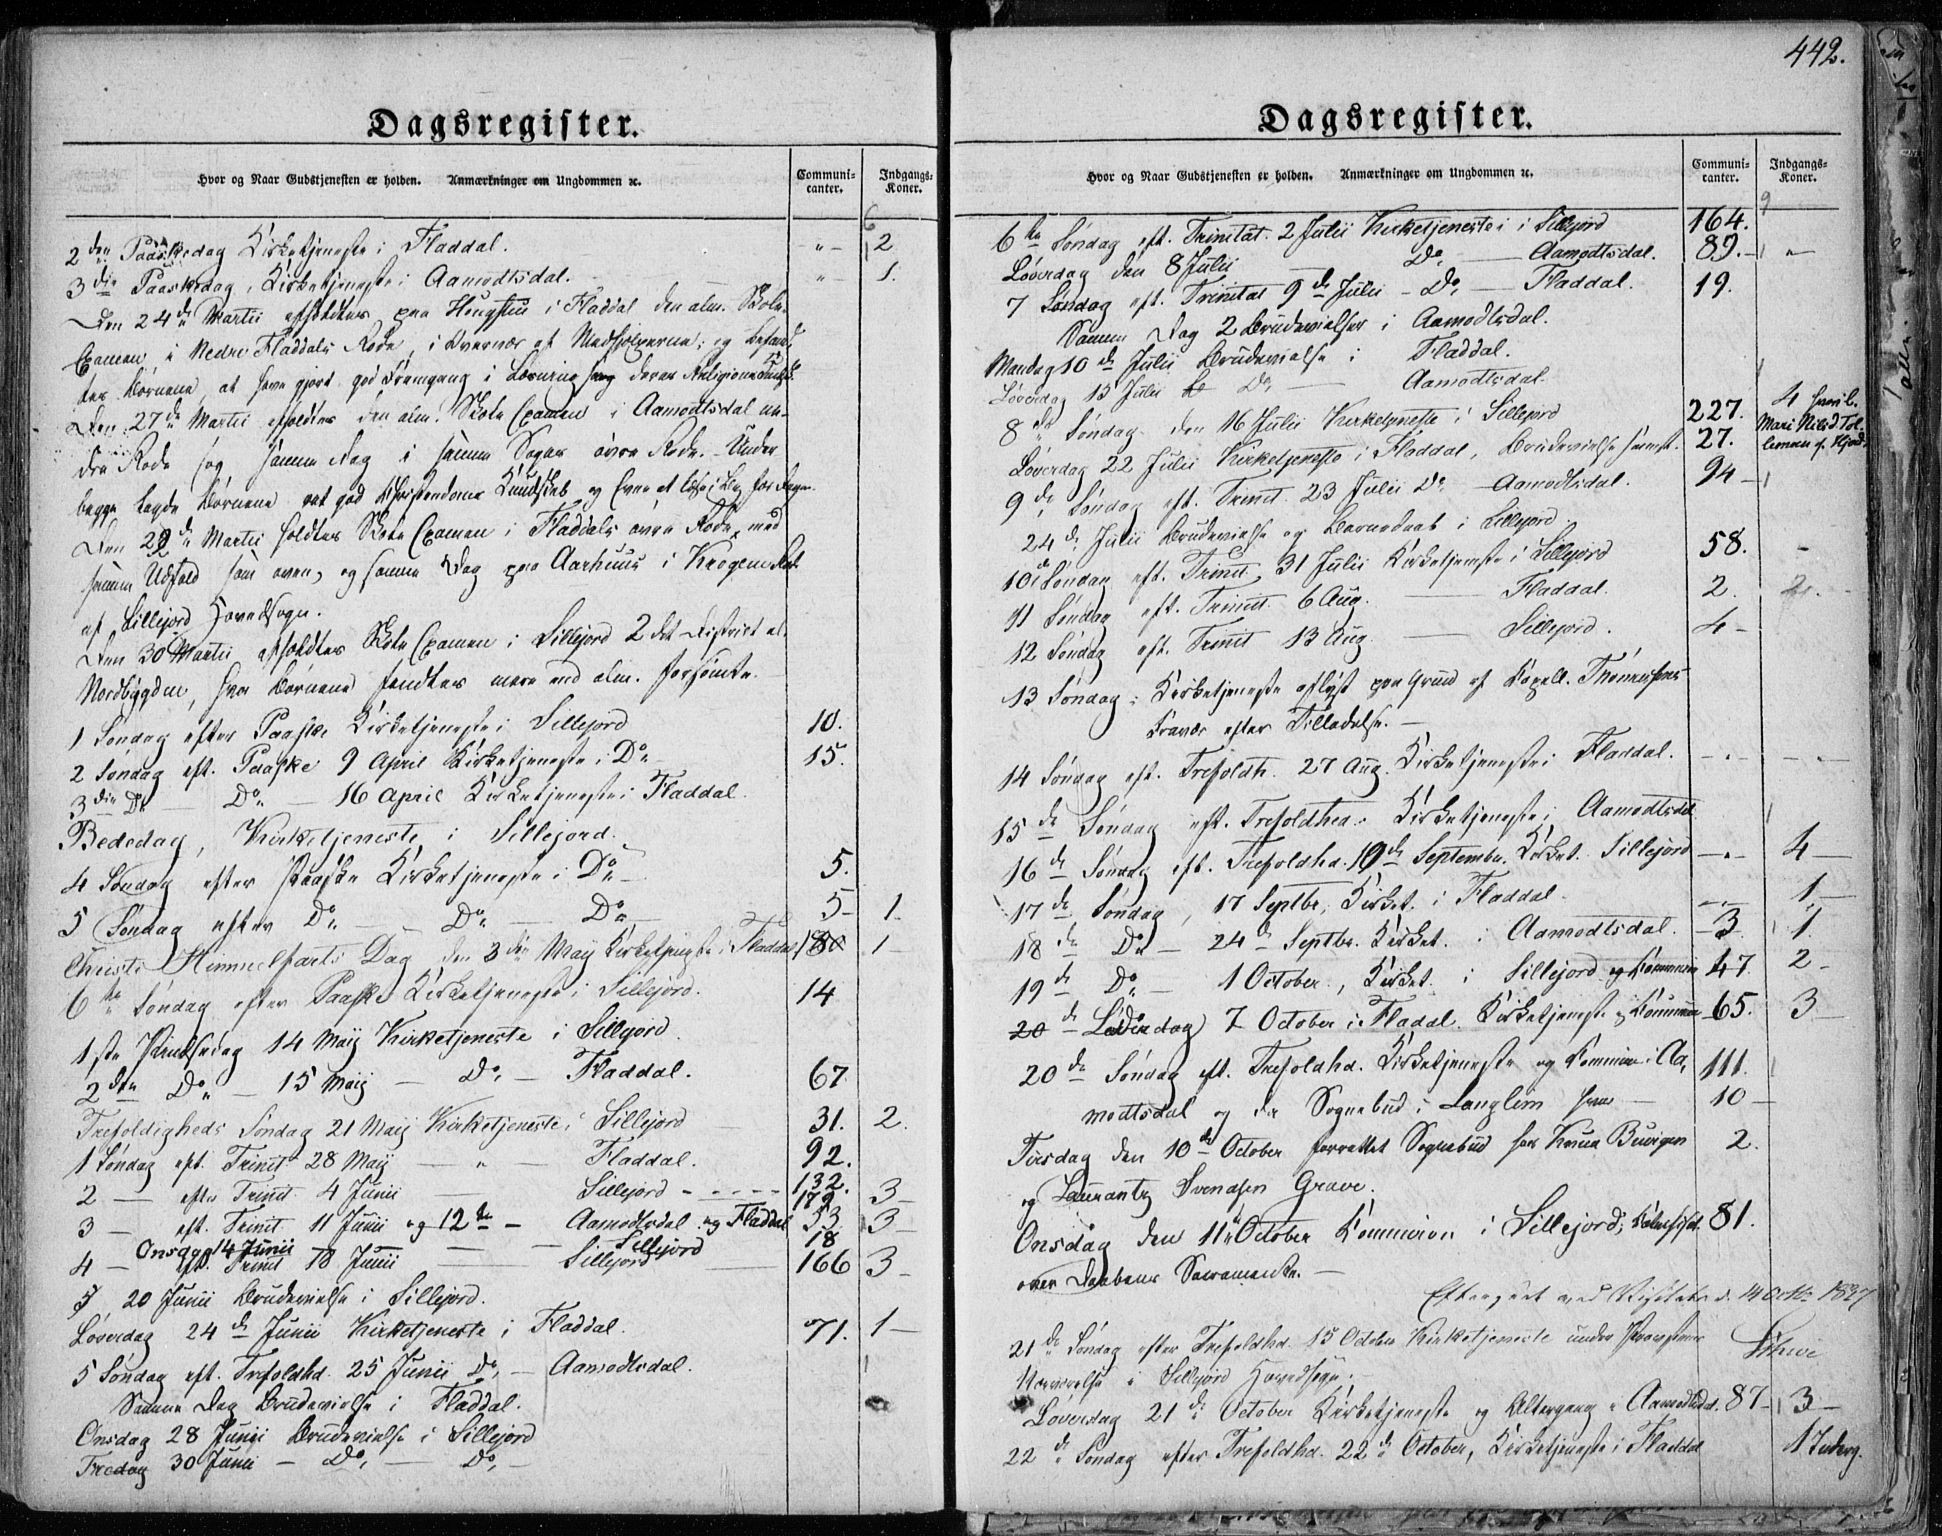 Dagsregister.
Hvor og Naar Gudstjenesten er holden. Anmærkninger om Ungdommen ꝛc.
Communi-
canter.
Indgangs-
Koner.
6
2den Paaskedag Kirketjeneste i Fladdal. " 2.
3die Paaskedag, Kirketjeneste i Aamodtsdal. " 1.
Den 24de Martii afholdtes paa i Fladdal den alm. Skole-
Examen i Nedre Fladdals Rode, i Overvær af Medhjelperne; og befand-
tes Børnene at have gjort god Fremgang i deres Religions
Den 27de Martii afholdtes den alm. Skole Examen i Aamodtsdal ne-
dre Rode og samme Dag i samme Sogns øvre Rode. Under
begge lagde Børnene god Christendoms Kundskab og Evne at læse i Bog for Dagen
Den 28de Martii holdtes Skole Examen i Fladdals øvre Rode, med
samme Udfald som oven, og samme Dag paa Aarhuus i
af Sillejord Hovedsogn.
Den 30 Martii afholdtes Skole Examen i Sillejord 2det District af
Nordbygden, hvor Børnene fandtes mere end alm. forsømte.
1 Søndag efter Paaske Kirketjeneste i Sillejord 10.
2 Søndag eft. Paaske 9 April Kirketjeneste i Do 15.
3die Do — Do — 16 April Kirketjeneste i Fladdal.
Bededag, Kirketjeneste i Sillejord.
4 Søndag efter Paaske Kirketjeneste i Do 5.
5 Søndag efter Do — Do — Do 5 1.
Christi Himmelfarts Dag den 3die Maij Kirketjeneste i Fladdal 80 1
6te Søndag efter Paaske Kirketjeneste i Sillejord. 14
1ste Pindsedag 14 Maij Kirketjeneste i Sillejord.
2den Do — 15 Maij — Do, — Fladdal. 67
Trefoldigheds Søndag 21 Maij Kirketjeneste i Sillejord 31. 2.
1 Søndag eft. Trinit 28 Maij — " — Fladdal. 92.
2 — efter Trinit. 4 Junii Sillejord 132.
179 3
3 — eft. Trinit. 11 Junii og 12te — Aamodtsdal og Fladdal 53 3
Onsdag 14 Junii — Sillejord 18
4 — eft. Trinit 18 Junii — Sillejord 166 3
5 20 Junii Brudevielse i Sillejord.
Løverdag 24de Junii Kirketjeneste i Fladdal. 71. 1
5 Søndag eft. Trefoldhd. 25 Junii Do, — Aamodtsdal.
Samme Dag Brudevielse i Fladdal.
Onsdag 28 Junii Brudevielse i Sillejord
Fredag 30 Junii — Do, — Do, —
442.
Dagsregister.
Hvor og Naar Gudstjenesten er holden. Anmærkninger om Ungdommen ꝛc.
Communi-
canter.
Indgangs-
Koner.
9
6te Søndag eft. Trinitat. 2 Julii Kirketjeneste i Sillejord 164.
Løverdag den 8 Julii Do, — Aamodtsdal. 89. "
7 Søndag eft. Trinitat 9de Julii — Do, — Fladdal. 19.
Samme Dag 2 Brudevielser i Aamodtsdal.
Mandag 10de Julii Brudevielse i Fladdal.
Løverdag 15 Julii Do, — Aamodtsdal.
8de Søndag den 16 Julii Kirketjeneste i Sillejord 227. 4
Løverdag 22 Julii Kirketjeneste i Fladdal, Brudevielse 27. Mari Nilsd. Tol-
9de Søndag eft. Trinit. 23 Julii Do — Aamodtsdal. 94
24de Julii Brudevielse og Barnedaab i Sillejord
10de Søndag eft. Trinit. 31 Julii Kirketjeneste i Sillejord 58. -
11 Søndag eft. Trinit 6 Aug. — Fladdal. 2. 2.
12 Søndag eft. Trinit 13 Aug. — Sillejord. 4
13 Søndag: Kirketjeneste aflyst paa Grund af Capell. Thønnesens
Fravær efter Tilladelse.
14 Søndag eft. Trefoldh. 27 Aug. Kirketjeneste i Fladdal. - " - - " -
15de Søndag eft. Trefoldhed. Kirketjeneste i Aamodtsdal
16de Søndag eft. Trefoldhd. 10de Septembr. Kirket. Sillejord — " — 4
17de Søndag, 17 Septbr, Kirket. i Fladdal. 1.
18de Do — 24de Septbr. Kirket. i Aamodtsdal. 3 1.
19de Do — 1 October, Kirket. i Sillejord og Kommunion 47. 2
20de Løverdag 7 October i Fladal. Kirketjeneste og Kommunion 65. 3
20de Søndag eft. Trefoldhd. Kirketjeneste og Kommunion i Aa- 111.
modtsdal og i Sognebud i Langlim 10
Tirsdag den 10de October forrettet Sognebud hos Knud Buvigen 2.
og Laurantz Svendsen Grave.
Onsdag den 11te October Kommunion i Sillejord, 81.
over Daabens Sacramente. —
Efterseet ved Visitats d. 14 Octbr 1837
21de Søndag efter Trefoldhd. 15 October Kirketjeneste under Provstens
Nærværelse i Sillejord Hovedsogn.
Løverdag 21de October Kirketjeneste og Altergang i Aamodtsdal. 87 3
22de Søndag efter Trefoldhd. 22de October, Kirketjeneste i Fladdal 1 Inderg.